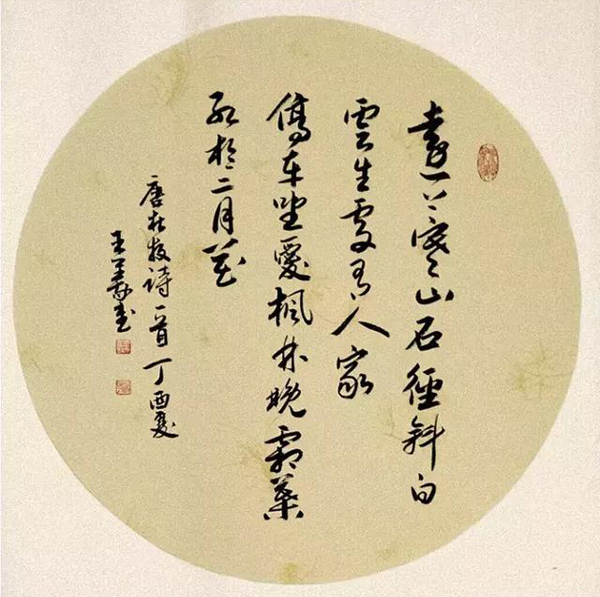 遠上寒山石徑斜白
雲生處有人家
停车坐愛楓林晚霜葉
紅於二月花
唐杜牧詩一首丁酉夏
王書